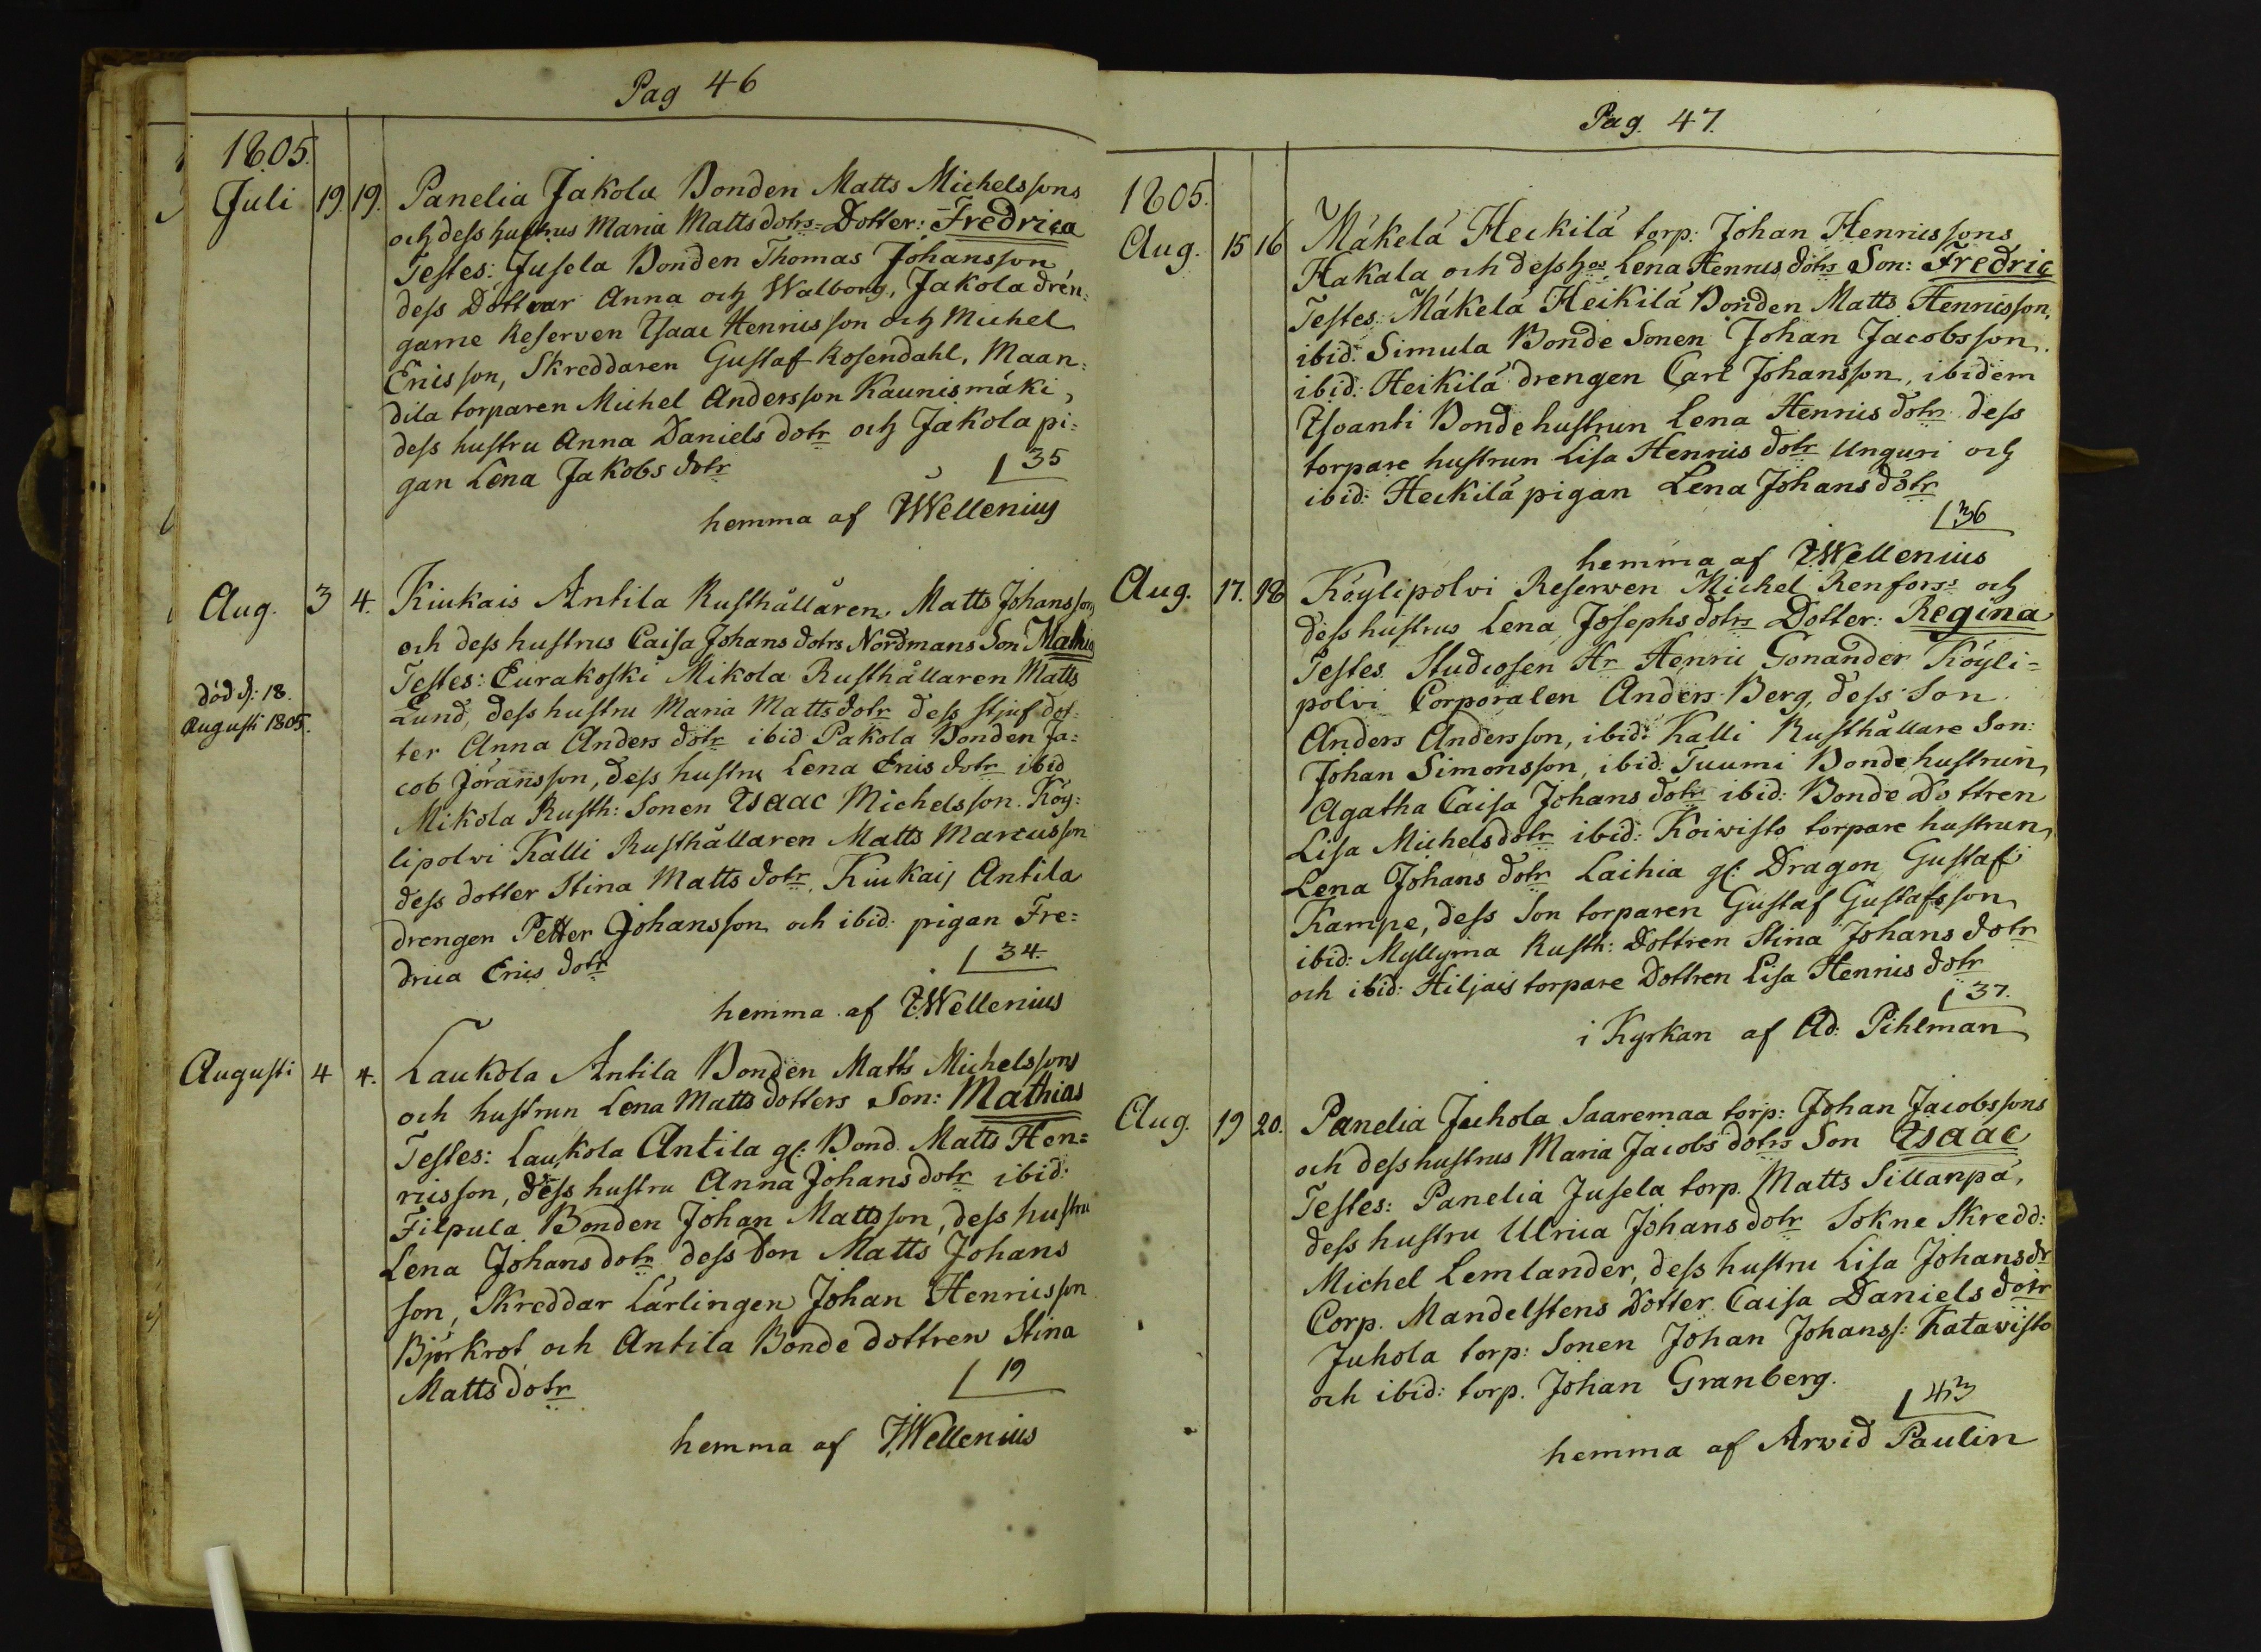 Pag 46
1805.
Juli 19 19. Panelia Jakola Bonden Matts Michelssons
och dess hustrus Maria Mattsdotrs Dotter: Fredrica
Testes: Jusela Bonden Thomas Johansson
dess Döttrar Anna och Walborg, Jakola drän=
garne Reserven Isaac Henricsson och Michel
Ericsson, Skreddaren Gustaf Rosendahl, Maan=
dila torparen Michel Andersson Kaunismäki,
dess hustru Anna Danielsdotr och Jakola pi=
gan Lena Jakobsdotr
35
hemma af I.Wellenius
Aug. 3 4. Kiukais Antila Rusthållaren Matts Johanssons
och dess hustrus Caisa Johansdotrs Nordmans Son Mathias
Testes: Eurakoski Mikola Rusthållaren Matts
död d: 18.
Augusti 1805.
Lund, dess hustru Maria Mattsdotr dess stjufdot=
ter Anna Andersdotr ibid Pakola Bonden Ja=
cob Jöransson, dess hustru Lena Ericsdotr ibid
Mikola Rusth: Sonen Isaac Michelsson. Köy=
lipolvi Kalli Rusthållaren Matts Marcusson
dess dotter Stina Mattsdotr, Kiukais Antila
drengen Petter Johansson och ibid: pigan Fre=
drica Ericsdotr
34.
hemma af I.Wellenius
Augusti 4 4. Laukola Antila Bonden Matts Michelssons
och hustrun Lena Mattsdotters Son: Mathias
Testes: Laukola Antila gl: Bond. Matts Hen=
ricsson, dess hustru Anna Johansdotr ibid:
Filpula Bonden Johan Mattsson, dess hustru
Lena Johansdotr dess Son Matts Johans
son, Skreddar Lärlingen Johan Henricsson
Björkrot och Antila Bondedottren Stina
Mattsdotr
19
hemma af I.Wellenius
Pag. 47.
1805.
Aug. 15 16 Mäkelä Heikilä torp: Johan Henricssons
Hakala och dess hos Lena Henricsdotrs Son: Fredric
Testes: Mäkelä Heikilä Bonden Matts Henricsson,
ibid: Simula Bonde Sonen Johan Jacobsson.
ibid: Heikilä drengen Carl Johansson, ibidem
Isoanti Bondehustrun Lena Henricsdotr dess
torpare hustrun Lisa Henricsdotr Unguri och
ibid: Heikilä pigan Lena Johansdotr
36
hemma af I.Wellenius
Aug. 17. 18 Köylipolvi Reserven Michel Renfors och
dess hustrus Lena Josephsdotrs Dotter: Regina
Testes. Studiosen Hr Henric Gonander Köyli=
polvi Corporalen Anders Berg, dess Son
Anders Andersson, ibid: Kalli Rusthållare Son:
Johan Simonsson, ibid: Tuumi Bondehustrun
Agatha Caisa Johansdotr ibid: Bonde Dottren
Lisa Michelsdotr ibid: Koivisto torpare hustrun
Lena Johansdotr Laihia gl: Dragon Gustaf
Kampe, dess Son torparen Gustaf Gustafsson
ibid: Myllyma Rusth: Dottren Stina Johansdotr
och ibid: Hiljais torpare Dottren Lisa Henricsdotr
37.
i Kyrkan af Ad: Pihlman
Aug. 19 20. Panelia Juhola Saaremaa torp: Johan Jacobssons
och dess hustrus Maria Jacobsdotrs Son Isaac
Testes: Panelia Jusela torp. Matts Sillanpä,
dess hustru Ulrica Johansdotr Sokne Skredd:
Michel Lemlander, dess hustru Lisa Johansdr
Corp. Mandelstens Dotter Caisa Danielsdotr
Juhola torp: Sonen Johan Johanss: Katawisto
och ibid: torp. Johan Granberg.
43
hemma af Arvid Paulin